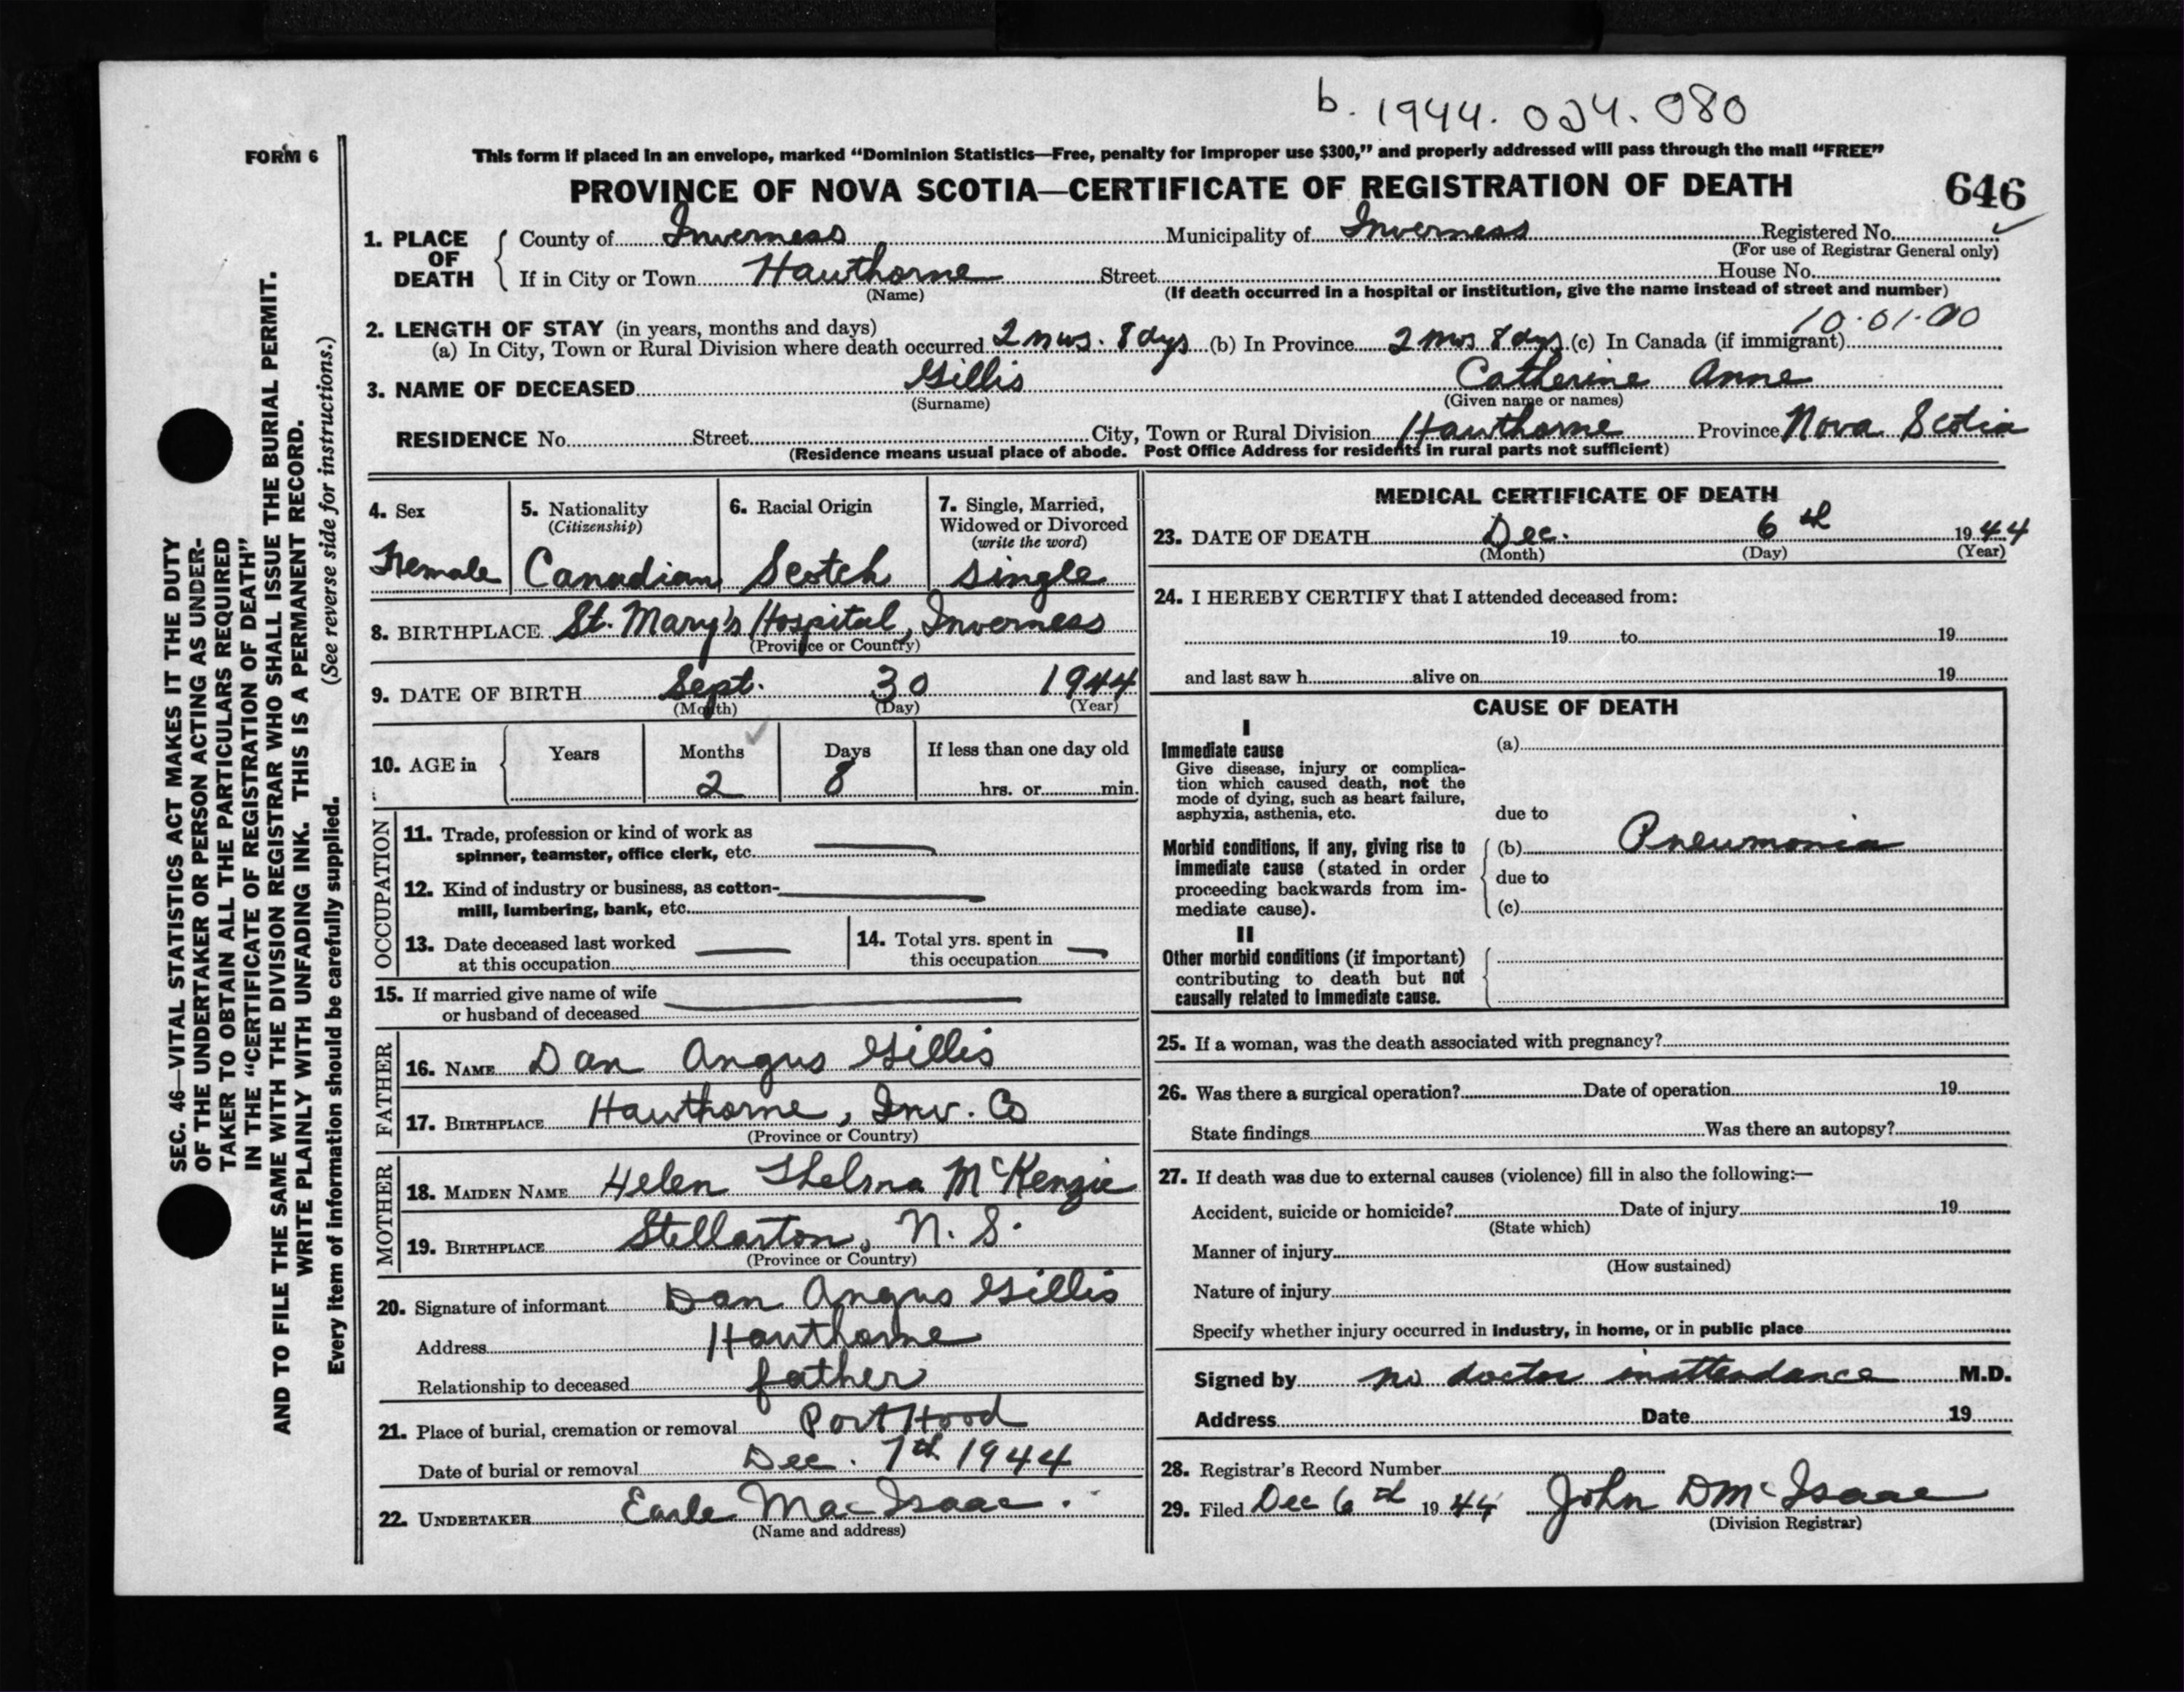 b. 1944. 024. 080
FORM 6
This form if placed in an envelope, marked “Dominion Statistics—Free, penalty for improper use $300,” and properly addressed will pass through the mail “FREE”
PROVINCE OF NOVA SCOTIA—CERTIFICATE OF REGISTRATION OF DEATH 646
1. PLACE OF DEATH County of Inverness Municipality of Inverness Registered No.
(For use of Registrar General only)
If in City or Town Hawthorne Street House No.
(Name) (If death occurred in a hospital or institution, give the name instead of street and number)
10.01.00
2. LENGTH OF STAY (in years, months and days)
(a) In City, Town or Rural Division where death occurred 2 mos. 8 dys (b) In Province 2 mos 8 dys (c) In Canada (if immigrant)
3. NAME OF DECEASED Gillis Catherine Anne
(Surname) (Given name or names)
RESIDENCE No. Street City, Town or Rural Division Hawthorne Province Nova Scotia
(Residence means usual place of abode. Post Office Address for residents in rural parts not sufficient)
4. Sex
Female
5. Nationality
(Citizenship)
Canadian
6. Racial Origin
Scotch
7. Single, Married,
Widowed or Divorced
(write the word)
single
8. BIRTHPLACE St. Mary's Hospital, Inverness
(Province or Country)
9. DATE OF BIRTH Sept. 30 1944
(Month) (Day) (Year)
10. AGE in Years Months Days If less than one day old
2 8 hrs. or min.
OCCUPATION
11. Trade, profession or kind of work as
spinner, teamster, office clerk, etc.
12. Kind of industry or business, as cotton-
mill, lumbering, bank, etc.
13. Date deceased last worked
at this occupation
14. Total yrs. spent in
this occupation
15. If married give name of wife
or husband of deceased
FATHER
16. NAME Dan Angus Gillis
17. BIRTHPLACE Hawthorne, Inv. Co
(Province or Country)
MOTHER
18. MAIDEN NAME Helen Thelma McKenzie
19. BIRTHPLACE Stellarton, N. S.
(Province or Country)
20. Signature of informant Dan Angus Gillis
Address Hawthorne
Relationship to deceased father
21. Place of burial, cremation or removal Port Hood
Date of burial or removal Dec. 7th 1944
22. UNDERTAKER Earle MacIsaac.
(Name and address)
MEDICAL CERTIFICATE OF DEATH
23. DATE OF DEATH Dec. 6th 1944
(Month) (Day) (Year)
24. I HEREBY CERTIFY that I attended deceased from:
19 to 19
and last saw h alive on 19
CAUSE OF DEATH
I
Immediate cause (a)
Give disease, injury or complica-
tion which caused death, not the
mode of dying, such as heart failure,
asphyxia, asthenia, etc. due to
Morbid conditions, if any, giving rise to (b) Pneumonia
immediate cause (stated in order due to
proceeding backwards from im-
mediate cause). (c)
II
Other morbid conditions (if important)
contributing to death but not
causally related to immediate cause.
25. If a woman, was the death associated with pregnancy?
26. Was there a surgical operation? Date of operation 19
State findings Was there an autopsy?
27. If death was due to external causes (violence) fill in also the following:—
Accident, suicide or homicide? Date of injury 19
(State which)
Manner of injury
(How sustained)
Nature of injury
Specify whether injury occurred in industry, in home, or in public place
Signed by no doctor in attendance M.D.
Address Date 19
28. Registrar's Record Number
29. Filed Dec 6th 1944 John D McIsaac
(Division Registrar)
SEC. 46—VITAL STATISTICS ACT MAKES IT THE DUTY
OF THE UNDERTAKER OR PERSON ACTING AS UNDER-
TAKER TO OBTAIN ALL THE PARTICULARS REQUIRED
IN THE “CERTIFICATE OF REGISTRATION OF DEATH”
AND TO FILE THE SAME WITH THE DIVISION REGISTRAR WHO SHALL ISSUE THE BURIAL PERMIT.
WRITE PLAINLY WITH UNFADING INK. THIS IS A PERMANENT RECORD.
Every item of information should be carefully supplied. (See reverse side for instructions.)